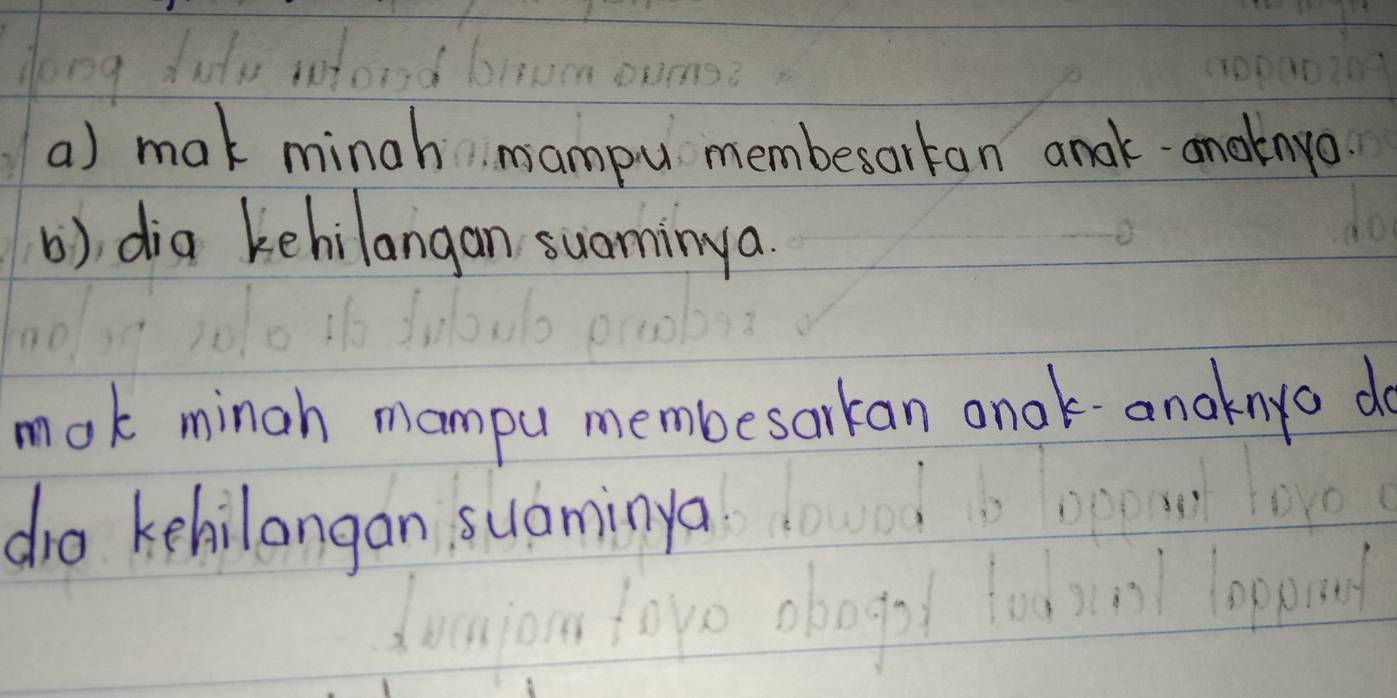 a) mak minah mampu membesarkan anak-anaknya.
b) dia kehilangan suaminya.
mak minah mampu membesarkan anak-anaknya
dia kehilangan suaminya.